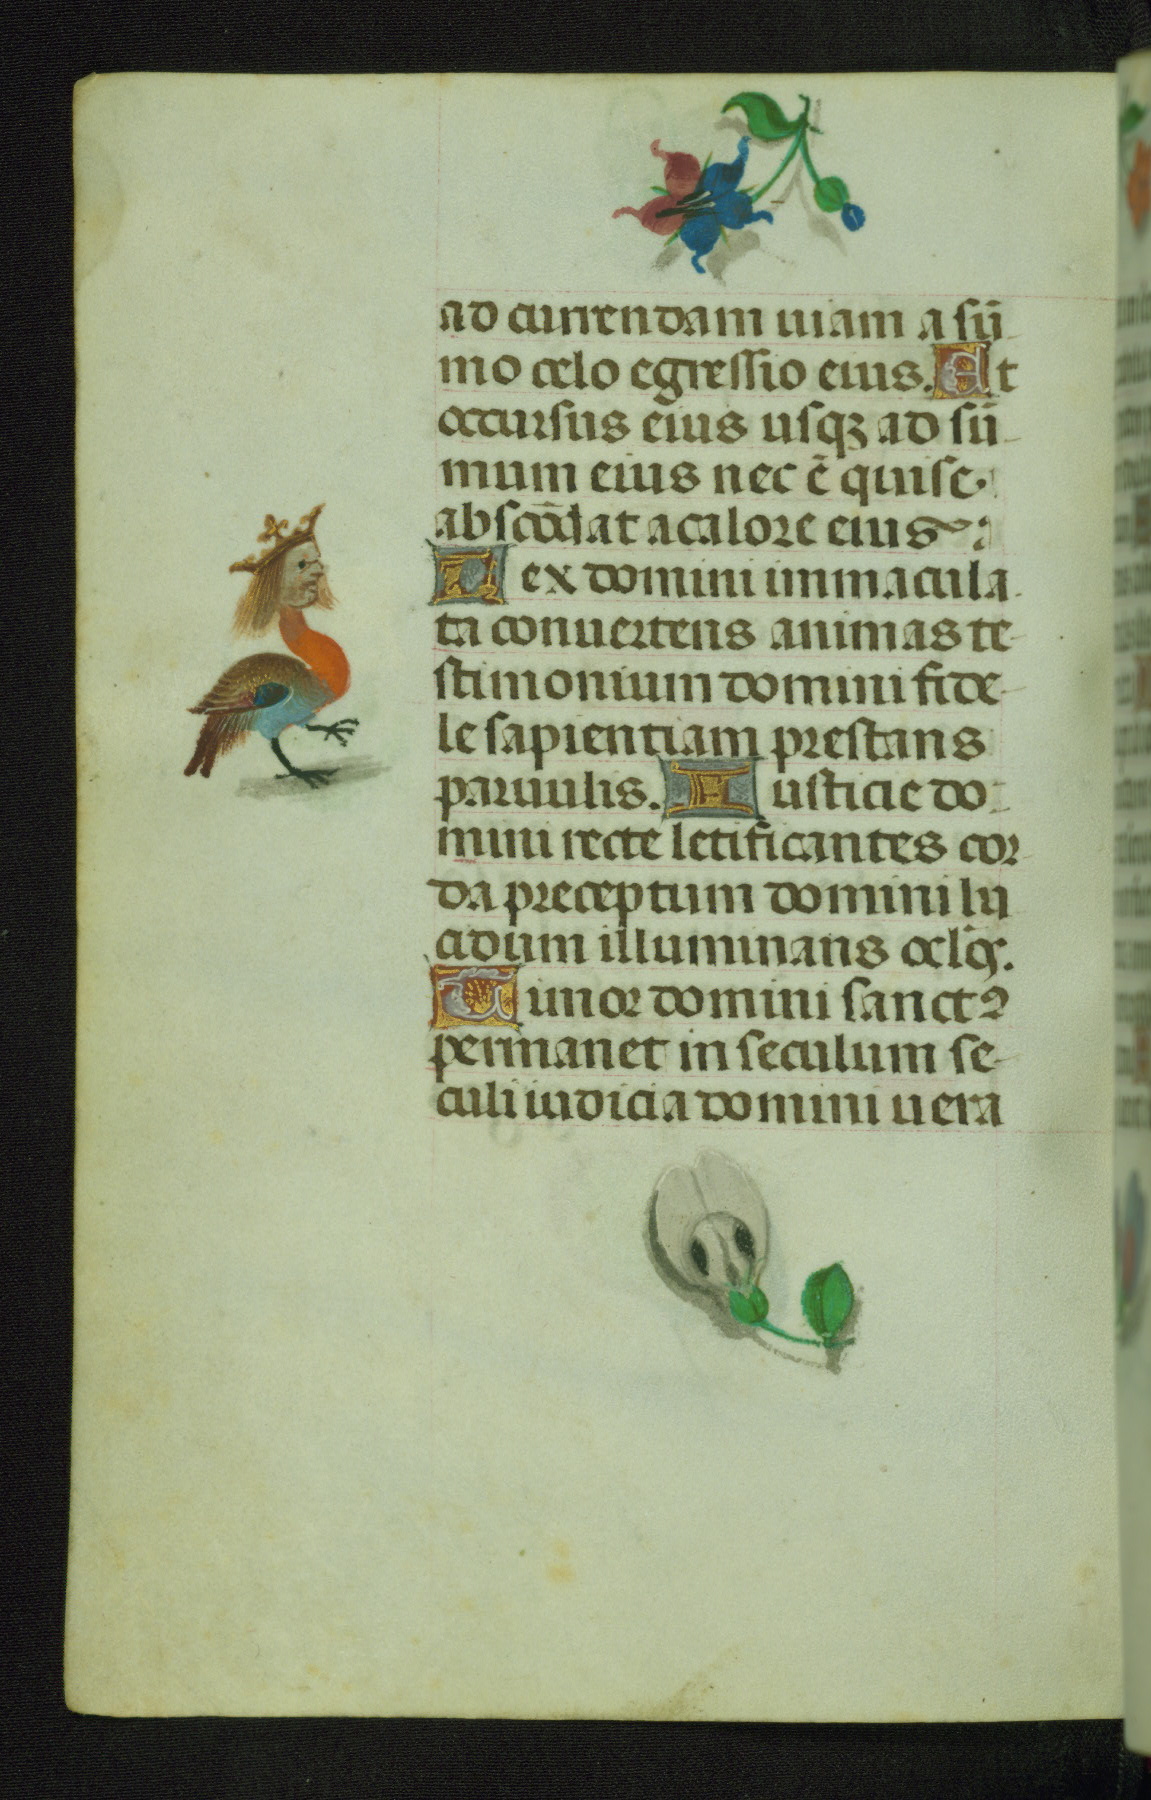 ad currendam uiam a sū
mo celo egressio eius. Et
occursus eius usqꝫ ad sū
mum eius nec ē qui se
abscōdat a calore eius
Lex domini immacula
ta conuertens animas te
stimonium domini fide
le sapientiam prestans
paruulis. Iusticie do
mini recte letificantes cor
da preceptum domini lu
cidum illuminans oclōs.
Timor domini sanctꝰ
permanet in seculum se
culi iudicia domini uera